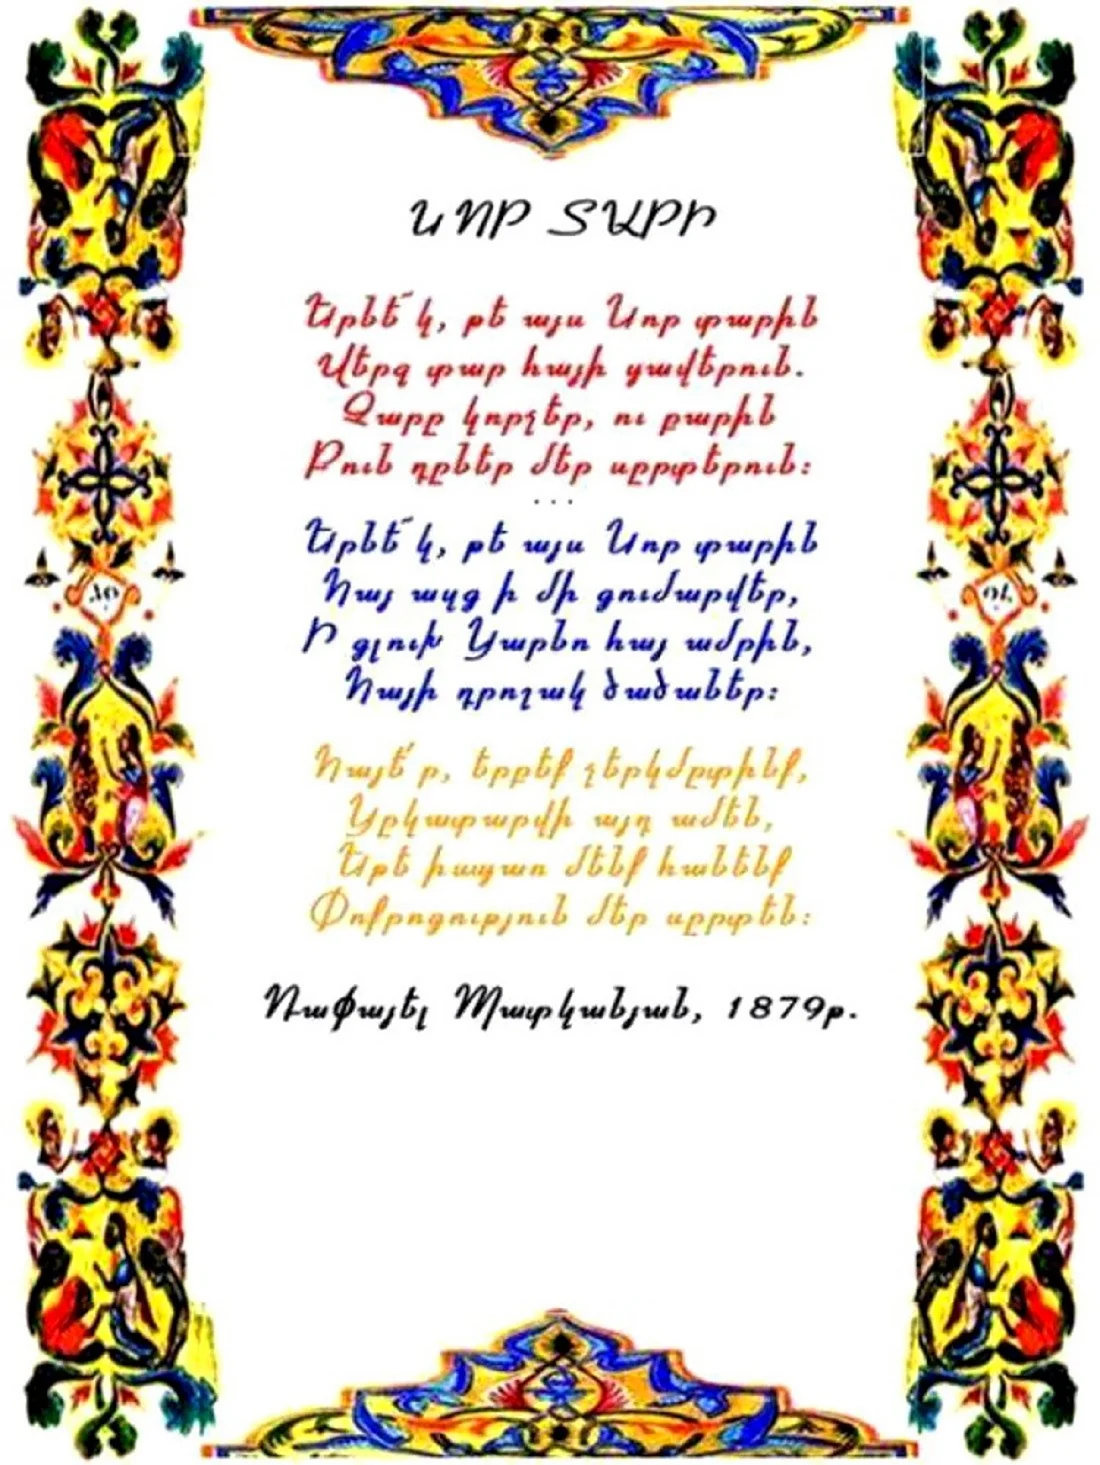 ՆՈՐ ՏԱՐԻ
Երնե՜կ, թե այս Նոր տարին
Վերջ տար հայի ցավերուն.
Չարը կորչեր, ու բարին
Բուն դըներ մեր սըրտերուն:
...
Երնե՜կ, թե այս Նոր տարին
Հայ ազգ ի մի գումարվեր,
Ի գլուխ Կարնո հայ ամրին,
Հայի դրոշակ ծածաներ:
Հայե՜ր, երբեք չերկմըտինք,
Կըկատարվի այդ ամեն,
Եթե իսպառ մենք հանենք
Փոքրոգություն մեր սըրտեն:
Ռափայել Պատկանյան, 1879թ.